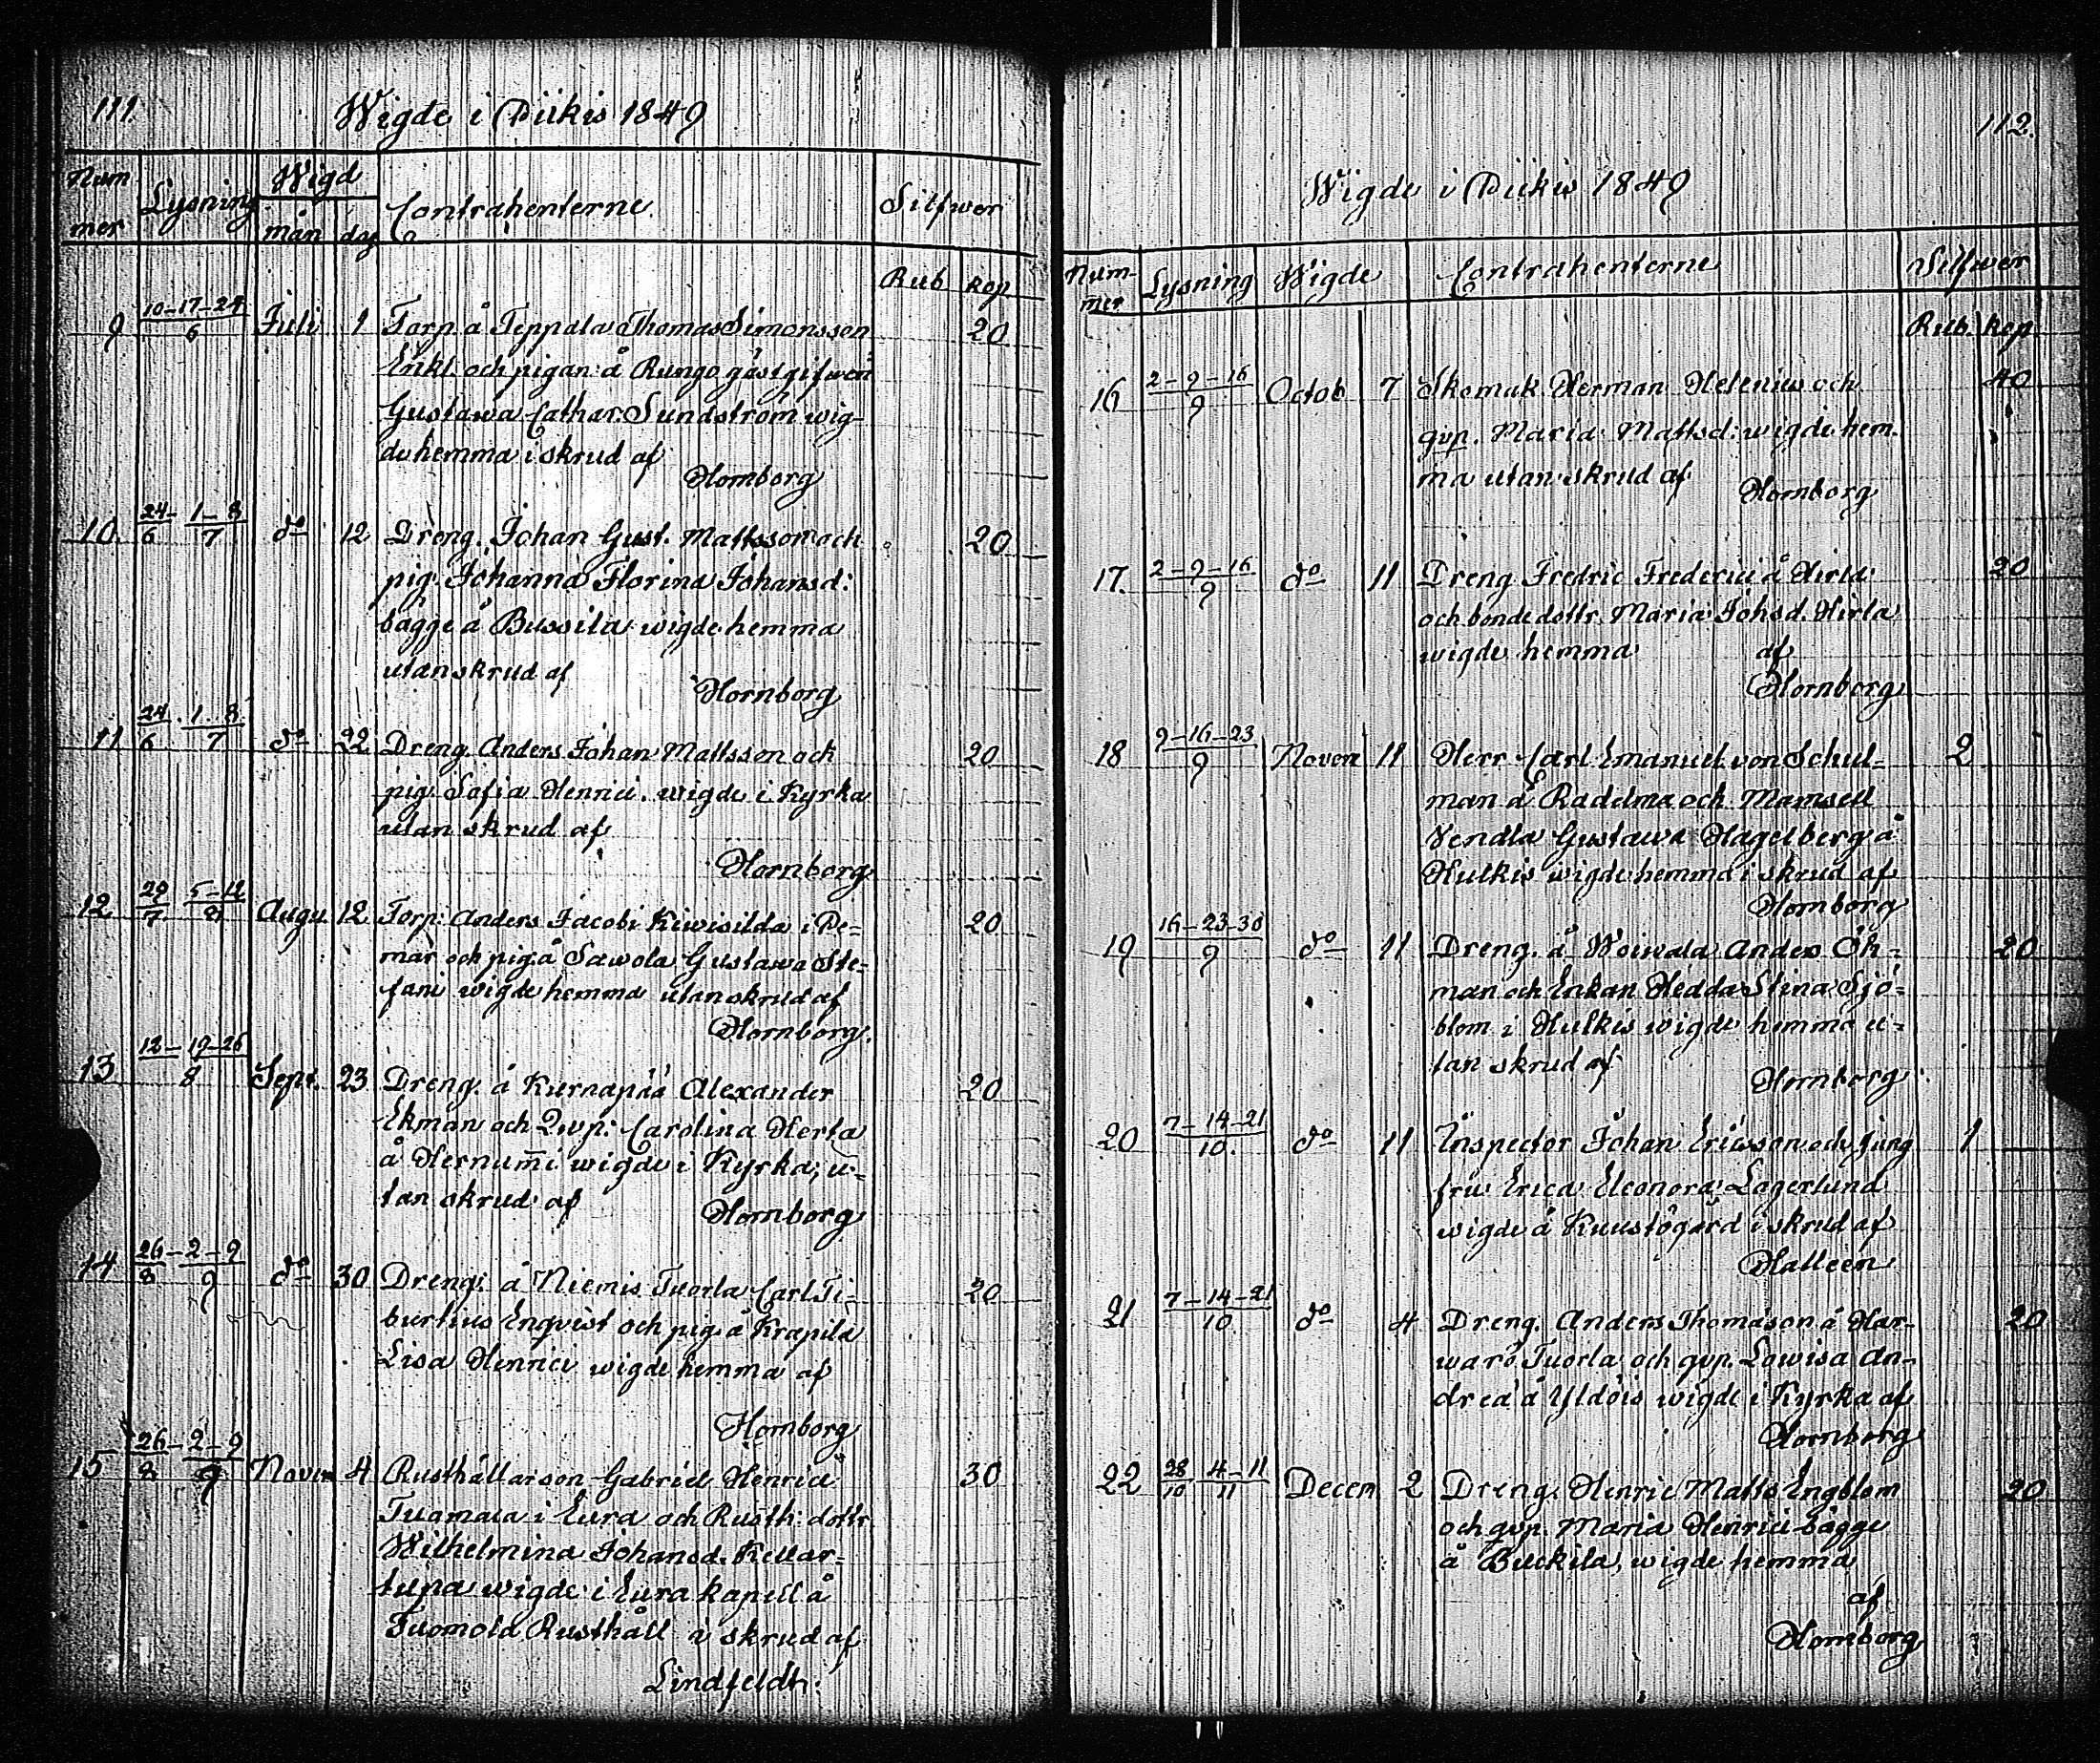 111.
Wigde i Piikis 1849
Num mer Lysning Wigd mån dag Contrahenterne. Silfwer
Rub kop
9 10-17-24/6 Juli 1 Torp. å Teppala Thomas Simonsson 20
Enkl. och pigan å Rungo gästgifweri
Gustawa Cathar. Sundström wig-
de hemma i skrud af
Hornborg
10 24/6 - 1-8/7 do 12 Dreng. Johan Gust. Mattsson och 20
pig. Johanna Florina Johansd:
bägge å Bussila wigde hemma
utan skrud af
Hornborg
11 24/6 . 1-8/7 do 22 Dreng. Anders Johan Mattsson och 20
pig. Sofia Henrici. wigde i Kyrka
utan skrud af
Hornborg
12 29/7 5-12/8 Augu 12 Torp: Anders Jacobi Kiwisilda i Pe- 20
mar och pig. å Sawola Gustawa Ste-
fani wigde hemma utan skrud af
Hornborg.
13 12-19-26/8 Sept. 23 Dreng. å Kurnapää Alexander 20
Ekman och Qvp: Carolina Herta
å Hernumi wigde i Kyrka; u-
tan skrud af
Hornborg
14 26/8 - 2-9/9 do 30 Dreng: å Niemis Tuorla Carl Ti- 20
burtius Enqvist och pig. å Krapila
Lisa Henrici wigde hemma af
Hornborg
15 26/8 - 2-9/9 Novem 4 Rusthållarson Gabriel Henrici 30
Tuomala i Eura och Rusth: dottr.
Wilhelmina Johansd. Kellar-
tupa wigde i Eura kapell å
Tuomola Rusthåll i skrud af
Lindfeldt.
112.
Wigde i Piikis 1849
Num- mer Lysning Wigde Contrahenterne Silfwer
Rub. kop.
16 2-9-16/9 Octob 7 Skomak Herman Helenius och 40
qvp. Maria Mattsd: wigde hem-
ma utan skrud af
Hornborg
17. 2-9-16/9 do 11 Dreng Fredric Frederici å Hirla 20
och bonde dottr. Maria Johsd. Hirla
wigde hemma af
Hornborg
18 9-16-23/9 Novem 11 Herr Carl Emanuel von Schul- 2
man å Radelma och Mamsell
Vendla Gustawa Hagelberg å
Hulkis wigde hemma i skrud af
Hornborg
19 16-23-30/9 do 11 Dreng. å Woiwala Anders Ök- 20
man och Enkan Hedda Stina Sjö-
blom i Hulkis wigde hemma u-
tan skrud af
Hornborg
20 7-14-21/10. do 11 Inspector Johan Ericsson och Jung 1
fru Erica Eleonora Lagerlund
wigde å Kuustögård i skrud af
Halleen
21 7-14-21/10 do 4 Dreng. Anders Thomason å Har- 20
warö Tuorla och qvp. Lowisa An-
drea å Yldöis wigde i Kyrka af
Hornborg
22 28/10 4-11/11 Decem 2 Dreng. Henric Matts Engblom 20
och qvp. Maria Henrici bägge
å Buckila, wigde hemma
af
Hornborg